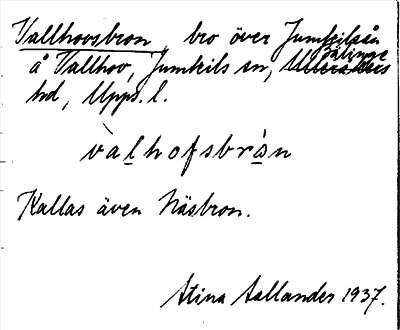 Vallhovsbron, bro över Jumkilsån
å Vallhov, Jumkils sn, Ulleråkers Bälinge
hd, Upps. l.
valhofsbrån
Kallas även Näsbron.
Stina Aallander 1937.